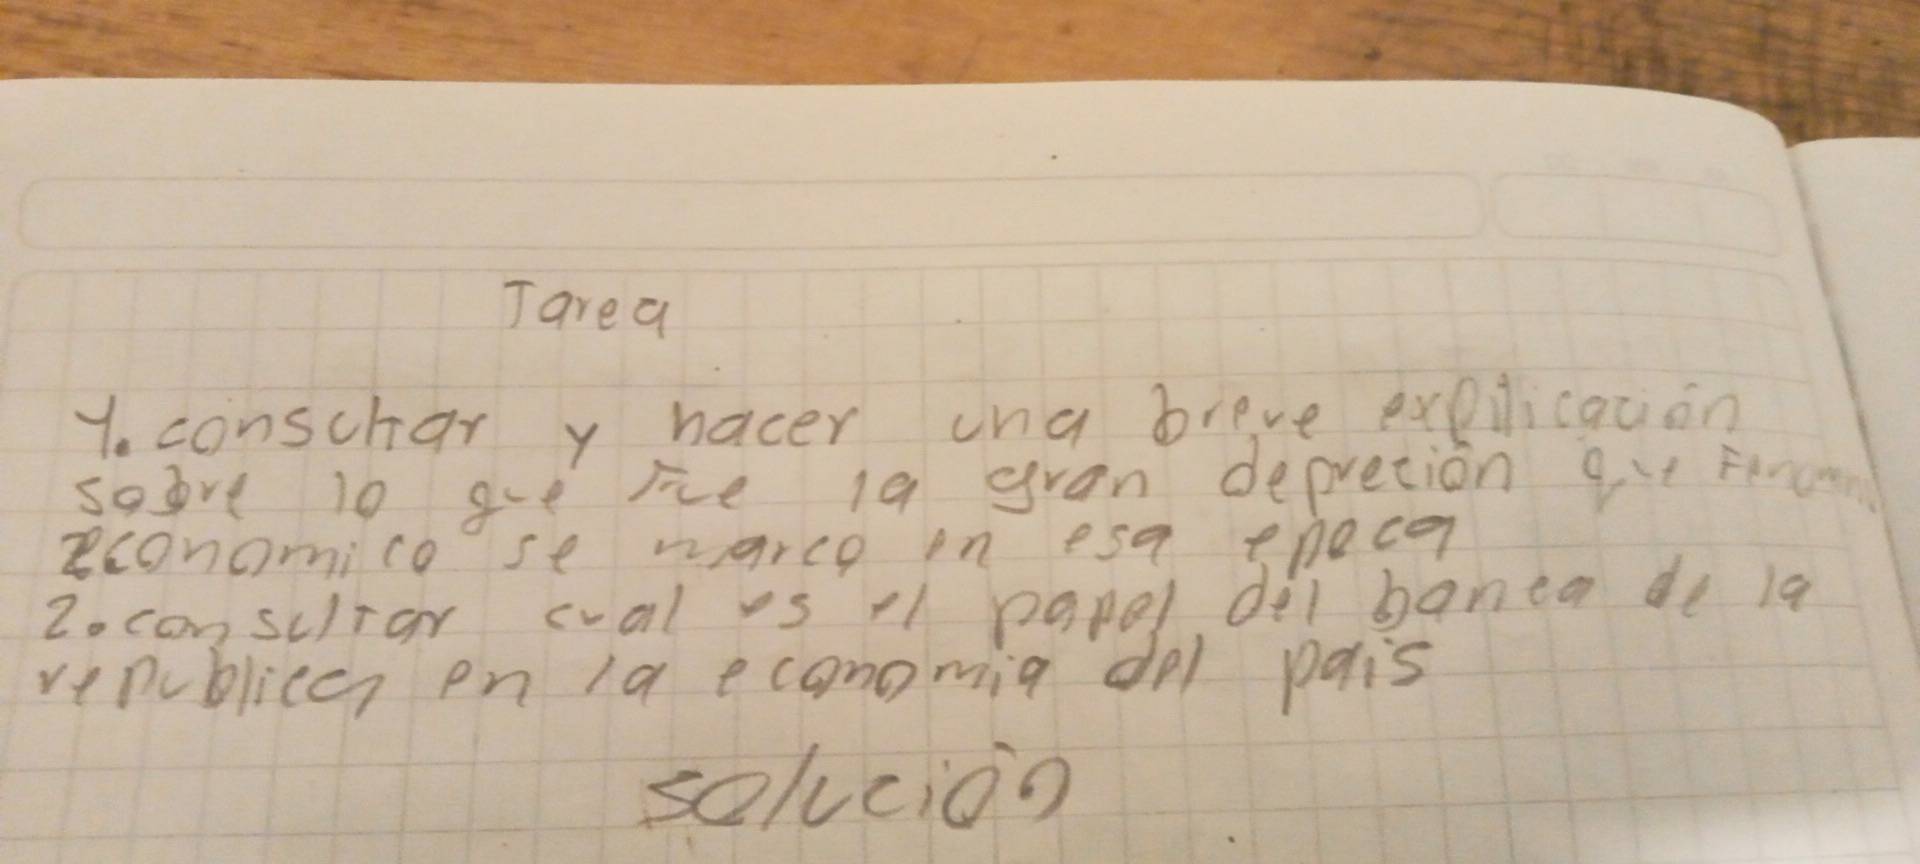 Tarea
1. consultar y hacer una breve explicación
sobre lo que fue la gran depreción que
Economico se marco en esa epoca
2. consultar cual es el papel del banca de la
republica en la economia del pais
solución